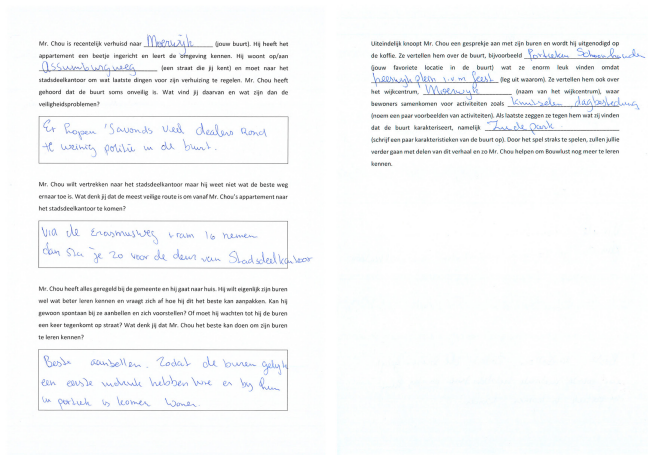 Mr. Chou is recentelijk verhuisd naar Moerwijk (jouw buurt). Hij heeft het
appartement een beetje ingericht en leert de omgeving kennen. Hij woont op/aan
Assumburgweg (een straat die jij kent) en moet naar het
stadsdeelkantoor om wat laatste dingen voor zijn verhuizing te regelen. Mr. Chou heeft
gehoord dat de buurt soms onveilig is. Wat vind jij daarvan en wat zijn dan de
veiligheidsproblemen?
Er lopen 's avonds veel dealers rond
te weinig politie in de buurt.
Mr. Chou wilt vertrekken naar het stadsdeelkantoor maar hij weet niet wat de beste weg
ernaar toe is. Wat denk jij dat de meest veilige route is om vanaf Mr. Chou's appartement naar
het stadsdeelkantoor te komen?
Via de Erasmusweg tram 16 nemen
dan sta je zo voor de deur van Stadsdeelkantoor
Mr. Chou heeft alles geregeld bij de gemeente en hij gaat naar huis. Hij wilt eigenlijk zijn buren
wel wat beter leren kennen en vraagt zich af hoe hij dit het beste kan aanpakken. Kan hij
gewoon spontaan bij ze aanbellen en zich voorstellen? Of moet hij wachten tot hij de buren
een keer tegenkomt op straat? Wat denk jij dat Mr. Chou het beste kan doen om zijn buren
te leren kennen?
Beste aanbellen. Zodat de buren gelijk
een eerste indruk hebben wie er bij hun
in portiek is komen wonen.
Uiteindelijk knoopt Mr. Chou een gesprekje aan met zijn buren en wordt hij uitgenodigd op
de koffie. Ze vertellen hem over de buurt, bijvoorbeeld Portieken Schoonhouden
(jouw favoriete locatie in de buurt) wat ze enorm leuk vinden omdat
heeswijkplein i.v.m feest (leg uit waarom). Ze vertellen hem ook over
het wijkcentrum, Moerwijk (naam van het wijkcentrum), waar
bewoners samenkomen voor activiteiten zoals knutselen dagbesteding
(noem een paar voorbeelden van activiteiten). Als laatste zeggen ze tegen hem wat zij vinden
dat de buurt karakteriseert, namelijk Zuiderpark
(schrijf een paar karakteristieken van de buurt op). Door het spel straks te spelen, zullen jullie
verder gaan met delen van dit verhaal en zo Mr. Chou helpen om Bouwlust nog meer te leren
kennen.